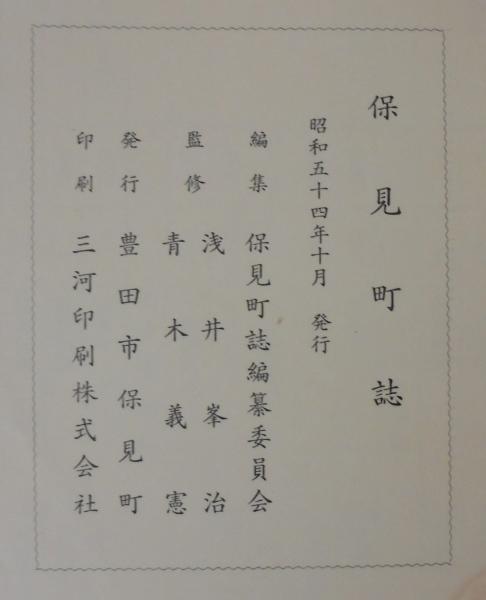 保見町誌
昭和五十四年十月　発行
編集　保見町誌編纂委員会
監修　浅井峯治
青木義憲
発行　豊田市保見町
印刷　三河印刷株式会社